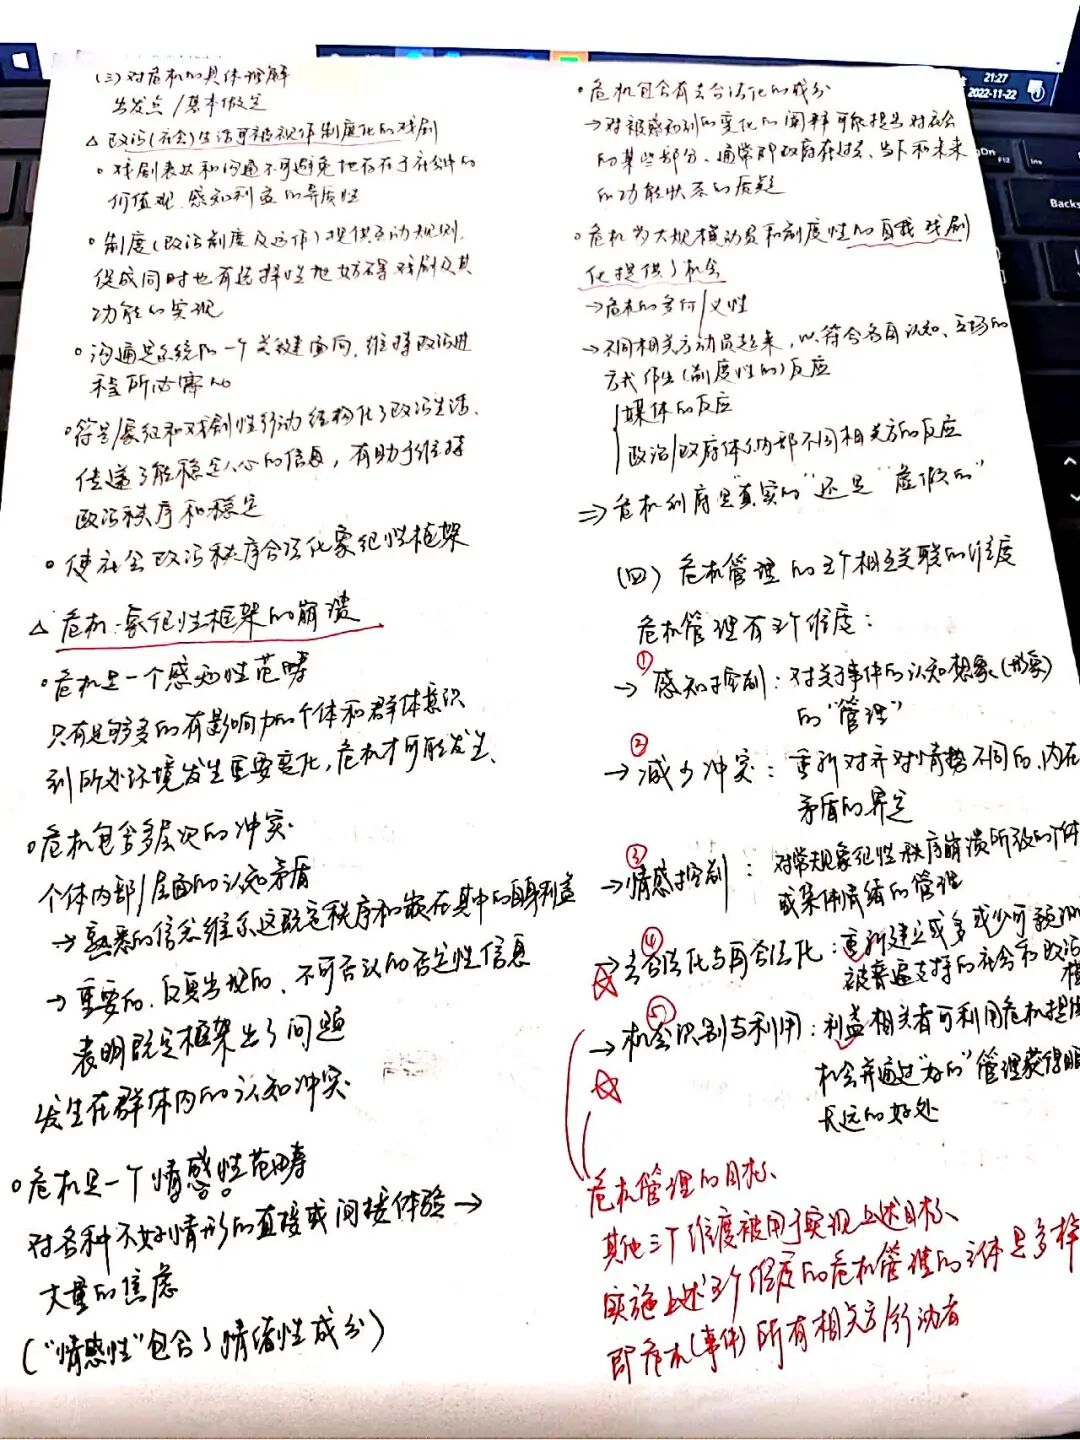 (三)对危机的具体理解
出发点/基本假定
△ 政治(社会)生活可被视作制度化的戏剧
• 戏剧表达和沟通不可避免地存在于在
价值观、感知利益的异质性
• 制度(政治制度及运作)提供互动规则,
促成同时也有选择性地妨碍戏剧及其
功能的实现
• 沟通是系统的一个关键面向,维持政治进
程所必需的
• 符号/象征和戏剧性行动结构化了政治生活,
传递了能稳定人心的信息,有助于维持
政治秩序和稳定
• 使社会政治秩序合法化象征性框架
△ 危机:象征性框架的崩溃
• 危机是一个感知性范畴
只有足够多的有影响力的个体和群体意识
到所处环境发生重要变化,危机才可能发生、
• 危机包含多层次的冲突
个体内部/层面的认知矛盾
→ 熟悉的信念维系这既定秩序和嵌在其中的自身利益
→ 重要的、反复出现的、不可否认的否定性信息
表明既定框架出了问题
发生在群体内的认知冲突
• 危机是一个情感性范畴
对各种不好情形的直接或间接体验→
大量的焦虑
("情感性"包含了情绪性成分)
• 危机包含有去合法化的成分
→ 对被感知到的变化的阐释可能提出对社会
的某些部分、通常即政府在过去、当下和未来
的功能状态的质疑
• 危机为大规模动员和制度性的自我戏剧
化提供了机会
→ 危机的多何/义性
→ 不同相关方动员起来,以符合各自认知、立场的
方式作出(制度性的)反应
媒体的反应
政治/政府体系内部不同相关方的反应
⇒ 危机到底是"真实的"还是"虚假的"
(四) 危机管理的五个相互关联的维度
危机管理有五个维度:
① → 感知控制:对关于事件的认知想象(形象)
的"管理"
② → 减少冲突:重新对齐对情势不同的、内在
矛盾的界定
③ → 情感控制:对常规象征性秩序崩溃所致的个体
或集体情绪的管理
④ → 去合法化与再合法化:重新建立或多或少可预
被普遍支持的社会和政治
⑤ → 机会识别与利用:利益相关者可利用危机提
机会并通过"好的"管理获得
长远的好处
危机管理的目标、
其他三个维度被用于实现上述目标、
实施上述五个维度的危机管理的主体是多样
即危机(事件)所有相关方/行动者
21:27
2022-11-22
Ins
Backs